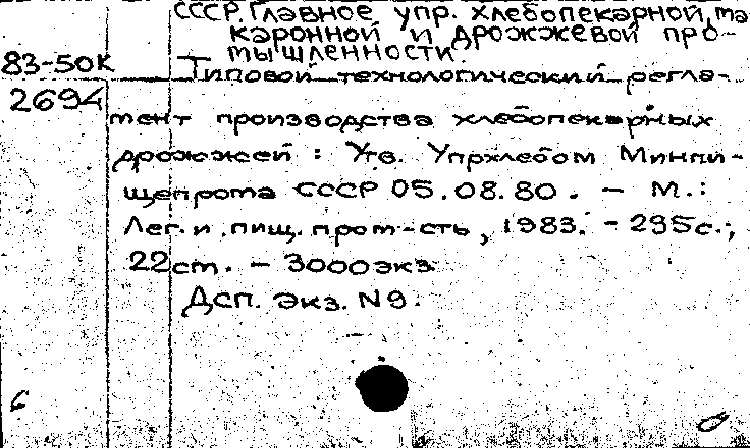 СССР. Главное упр. хлебопекарной, ма
каронной и дрожжевой про-
мышленности.
83-50к
Типовой технологический регла-
2694
мент производства хлебопекарных
дрожжей : Утв. Упрхлебом Минпи-
щепрома СССР 05.08.80. - М.:
Лег. и пищ. пром-сть, 1983. - 295с.;
22см. - 3000экз.
Дсп. Экз. N9.
6